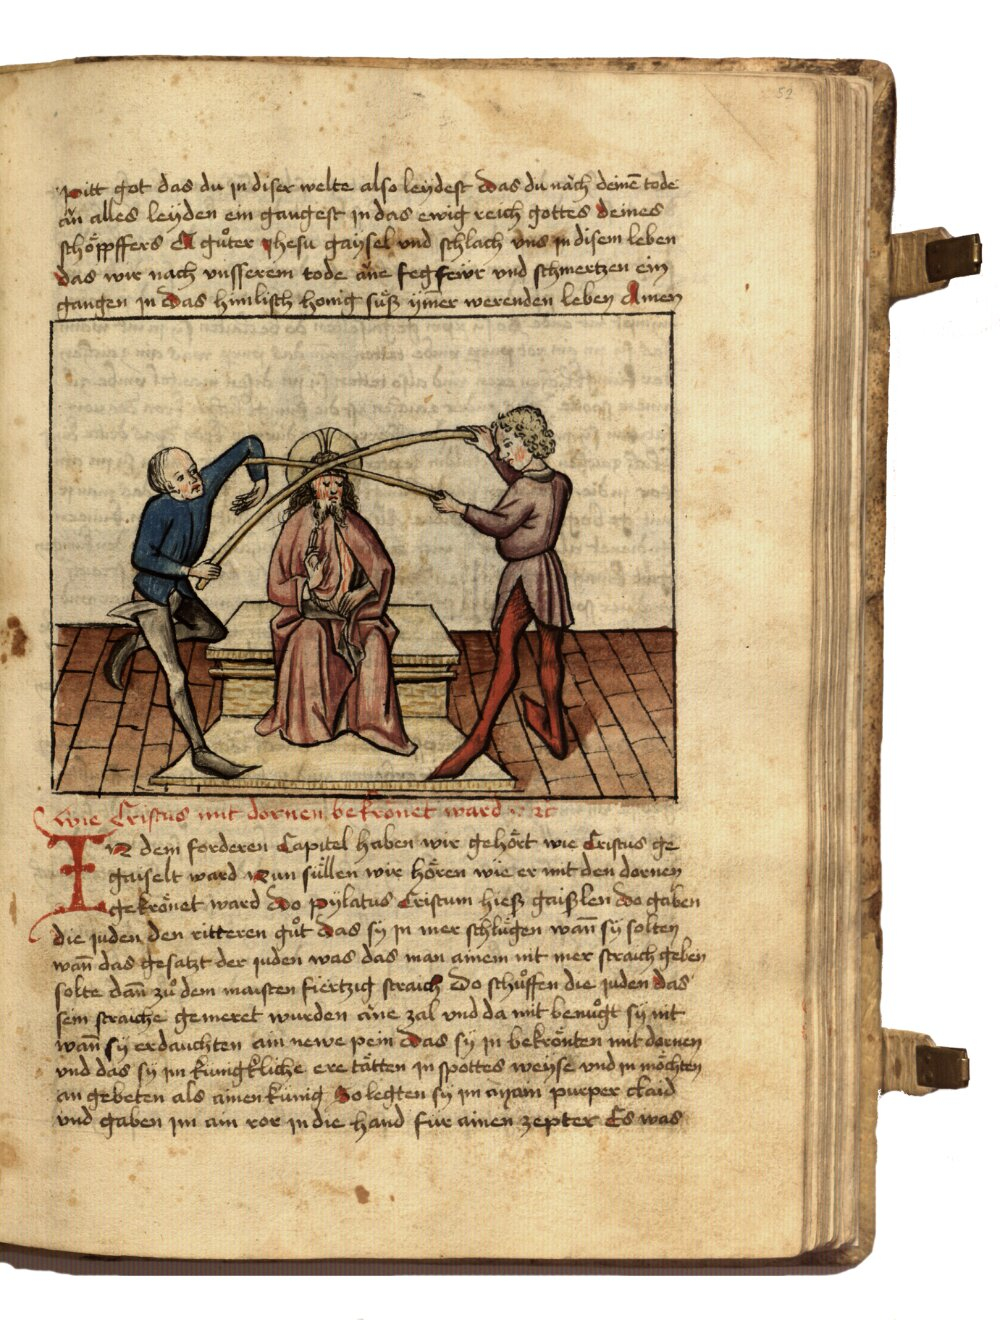 52
pitt got das du in diser welte also leydest das du nach deinē tode
ān alles leyden ein gangest in das ewig reich gottes deines
schöpffers A gůter ihesu gaysel vnd schlach vns in disem leben
das wir nach vnsserem tode āne fegfewr vnd schmertzen ein
gangen in das himlisch honig süß ym̄er werenden leben Amen
wie Cristus mit dornen bekrönet ward
In dem forderen Capitel haben wir gehört wie Cristus ge
gaiselt ward Nun süllen wir hören wie er mit den dornen
gekrönet ward Do pylatus Cristum hieß gaißlen do gaben
die juden den ritteren gůt das sy in mer schlůgen wan̄ sy solten
wan̄ das gesatzt der juden was das man ainem nit mer straich geben
solte dan̄ zů dem maisten fiertzig straich Do schůffen die juden das
sein straiche gemeret wurden āne zal vnd da mit benůgt sy nit
wan̄ sy erdauchten ain newe pein das sy in bekrönten mit dornen
vnd das sy im kungkliche ere tätten in spottes weyse vnd in möchten
an gebeten als ainen künig So legten sy im an ain purper claid
vnd gaben im ain ror in die hand für ainen zepter Es was